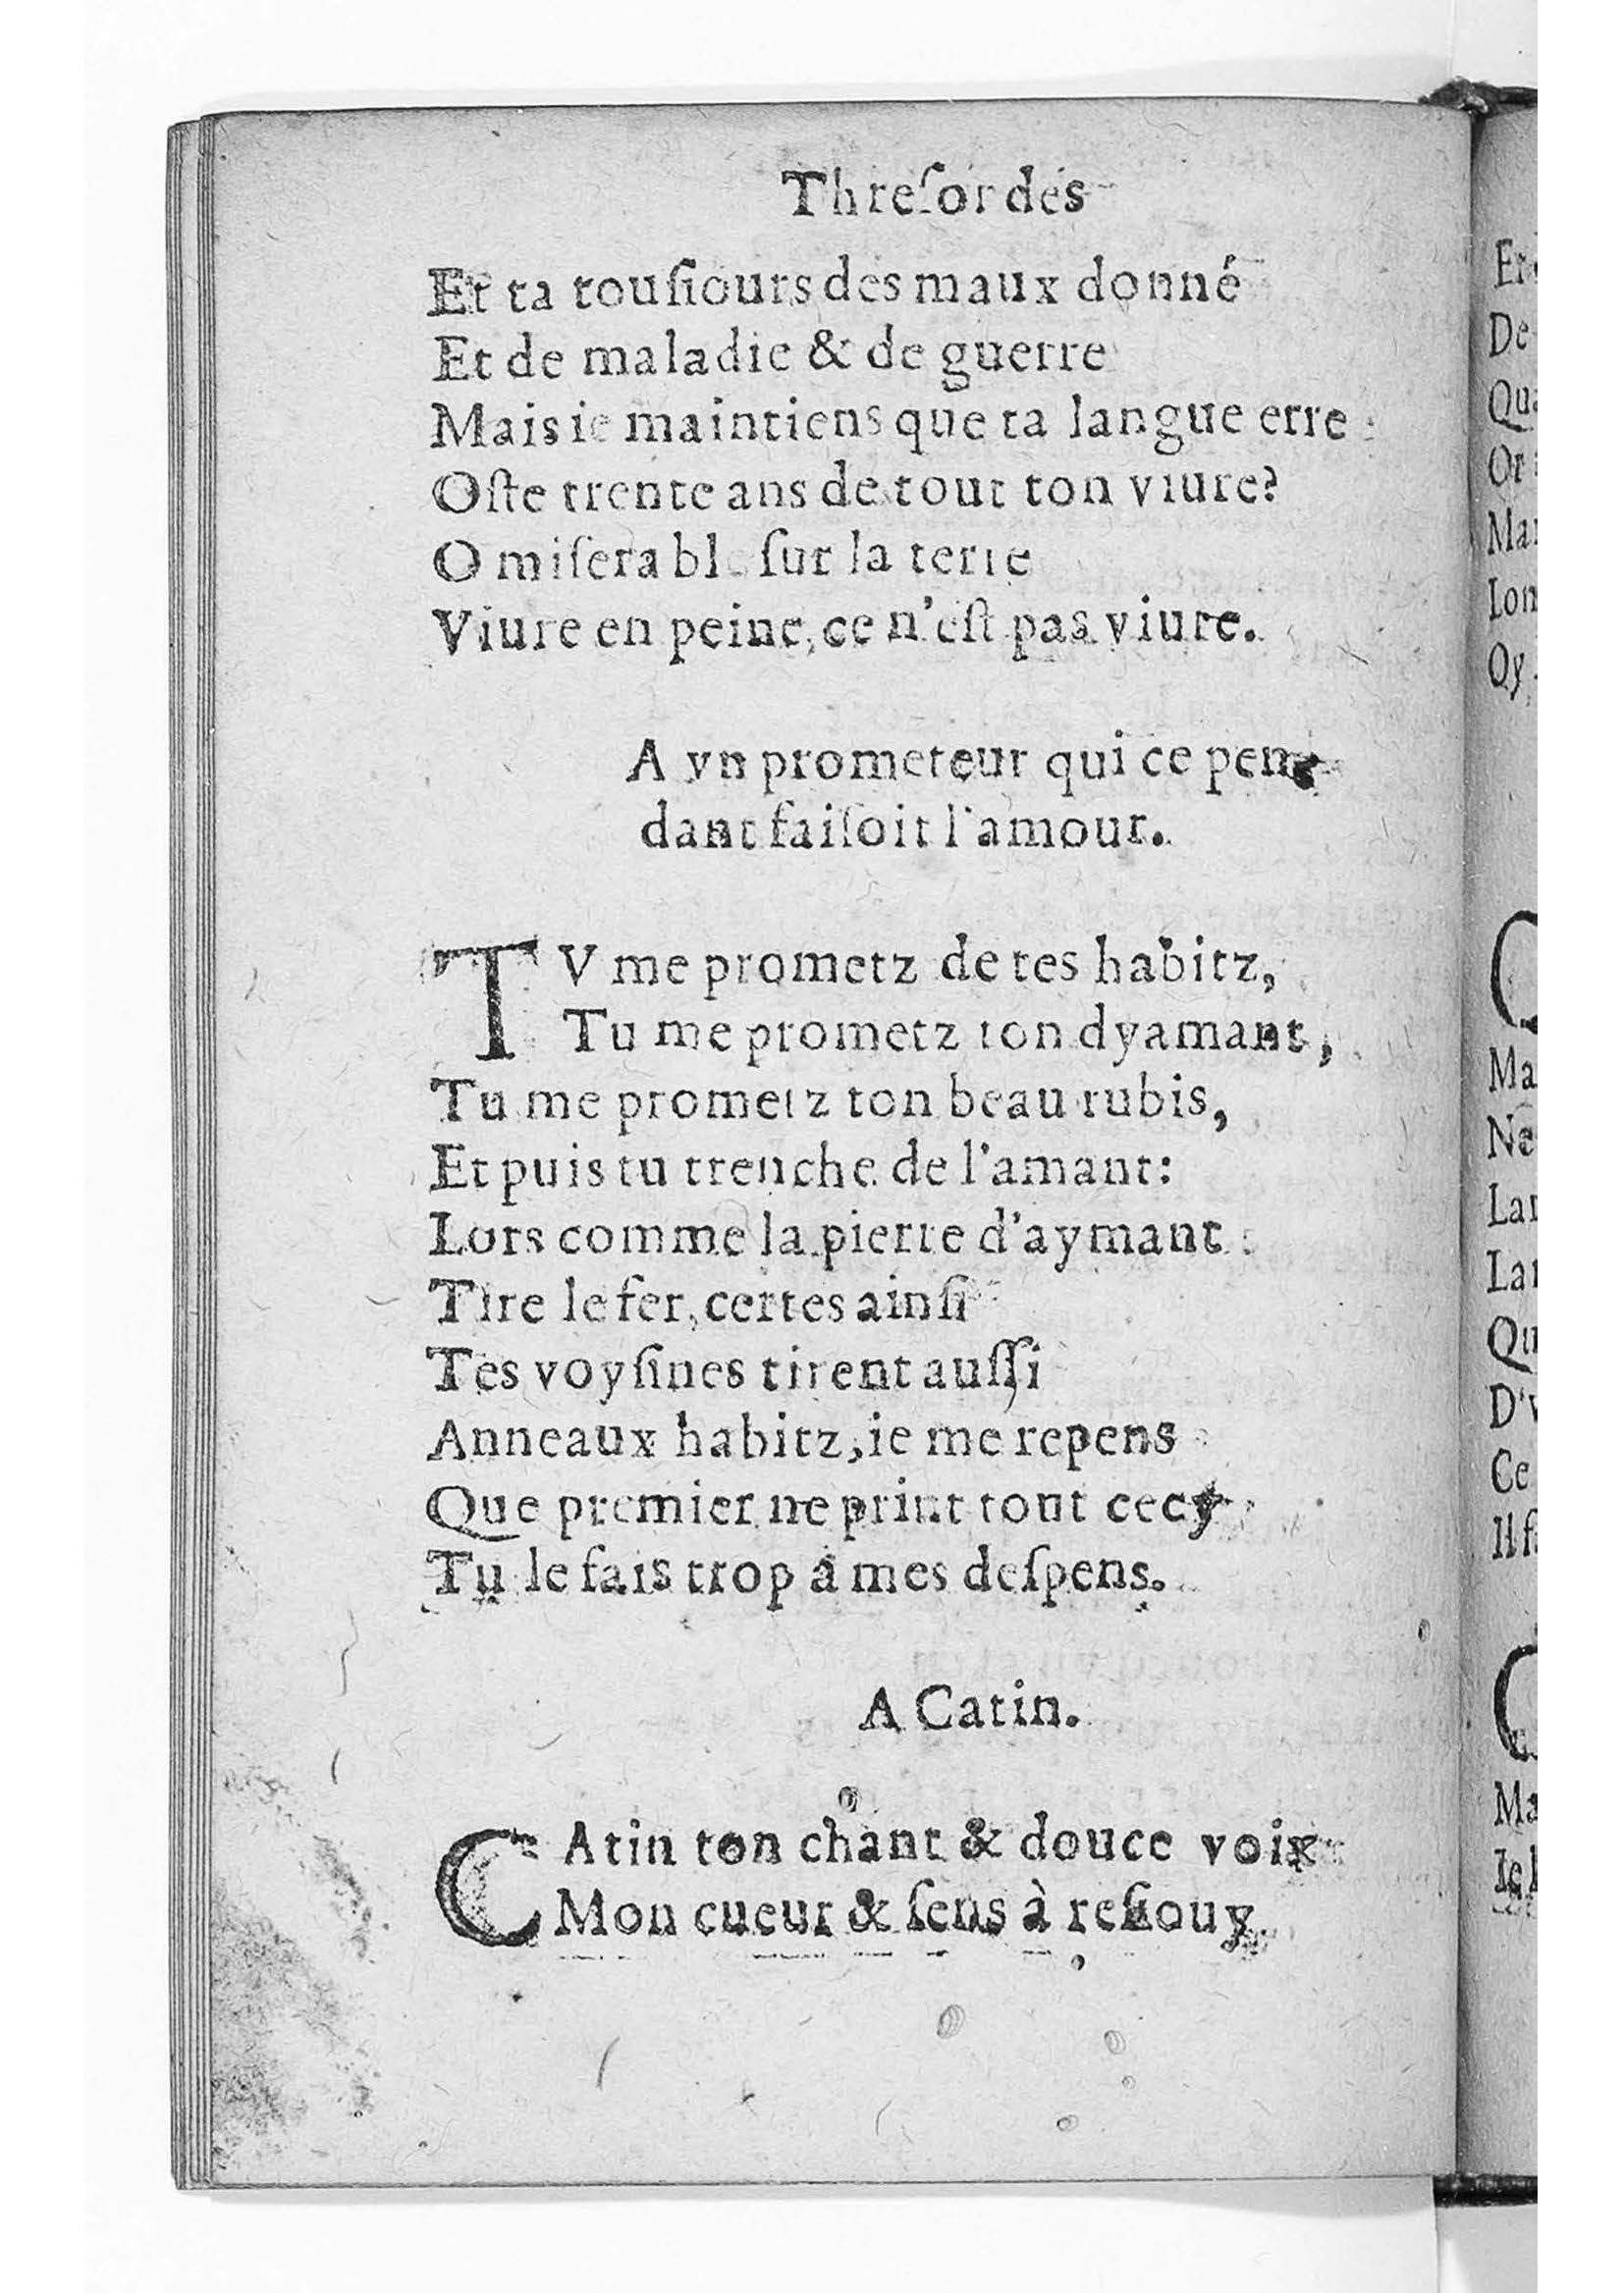 Threſor des
Et ta touſiours des maux donné
Et de maladie & de guerre
Mais ie maintiens que ta langue erre :
Oſte trente ans de tout ton viure?
O miſerable ſur la terre
Viure en peine, ce n'eſt pas viure.
A vn prometeur qui ce pen-
dant faiſoit l'amour.
TV me prometz de tes habitz,
Tu me prometz ton dyamant,
Tu me prometz ton beau rubis,
Et puis tu trenche de l'amant:
Lors comme la pierre d'aymant
Tire le fer, certes ainſi
Tes voyſines tirent auſſi
Anneaux habitz, ie me repens
Que premier ne print tout cecy
Tu le fais trop à mes deſpens.
A Catin.
CAtin ton chant & douce voix
Mon cueur & ſens à reſiouy
Er
De
Qua
Or
Mar
Lon
Oy
C
Ma
Ne
Lar
Lar
Qu
D'v
Ce
Il f
C
Ma
Ie l